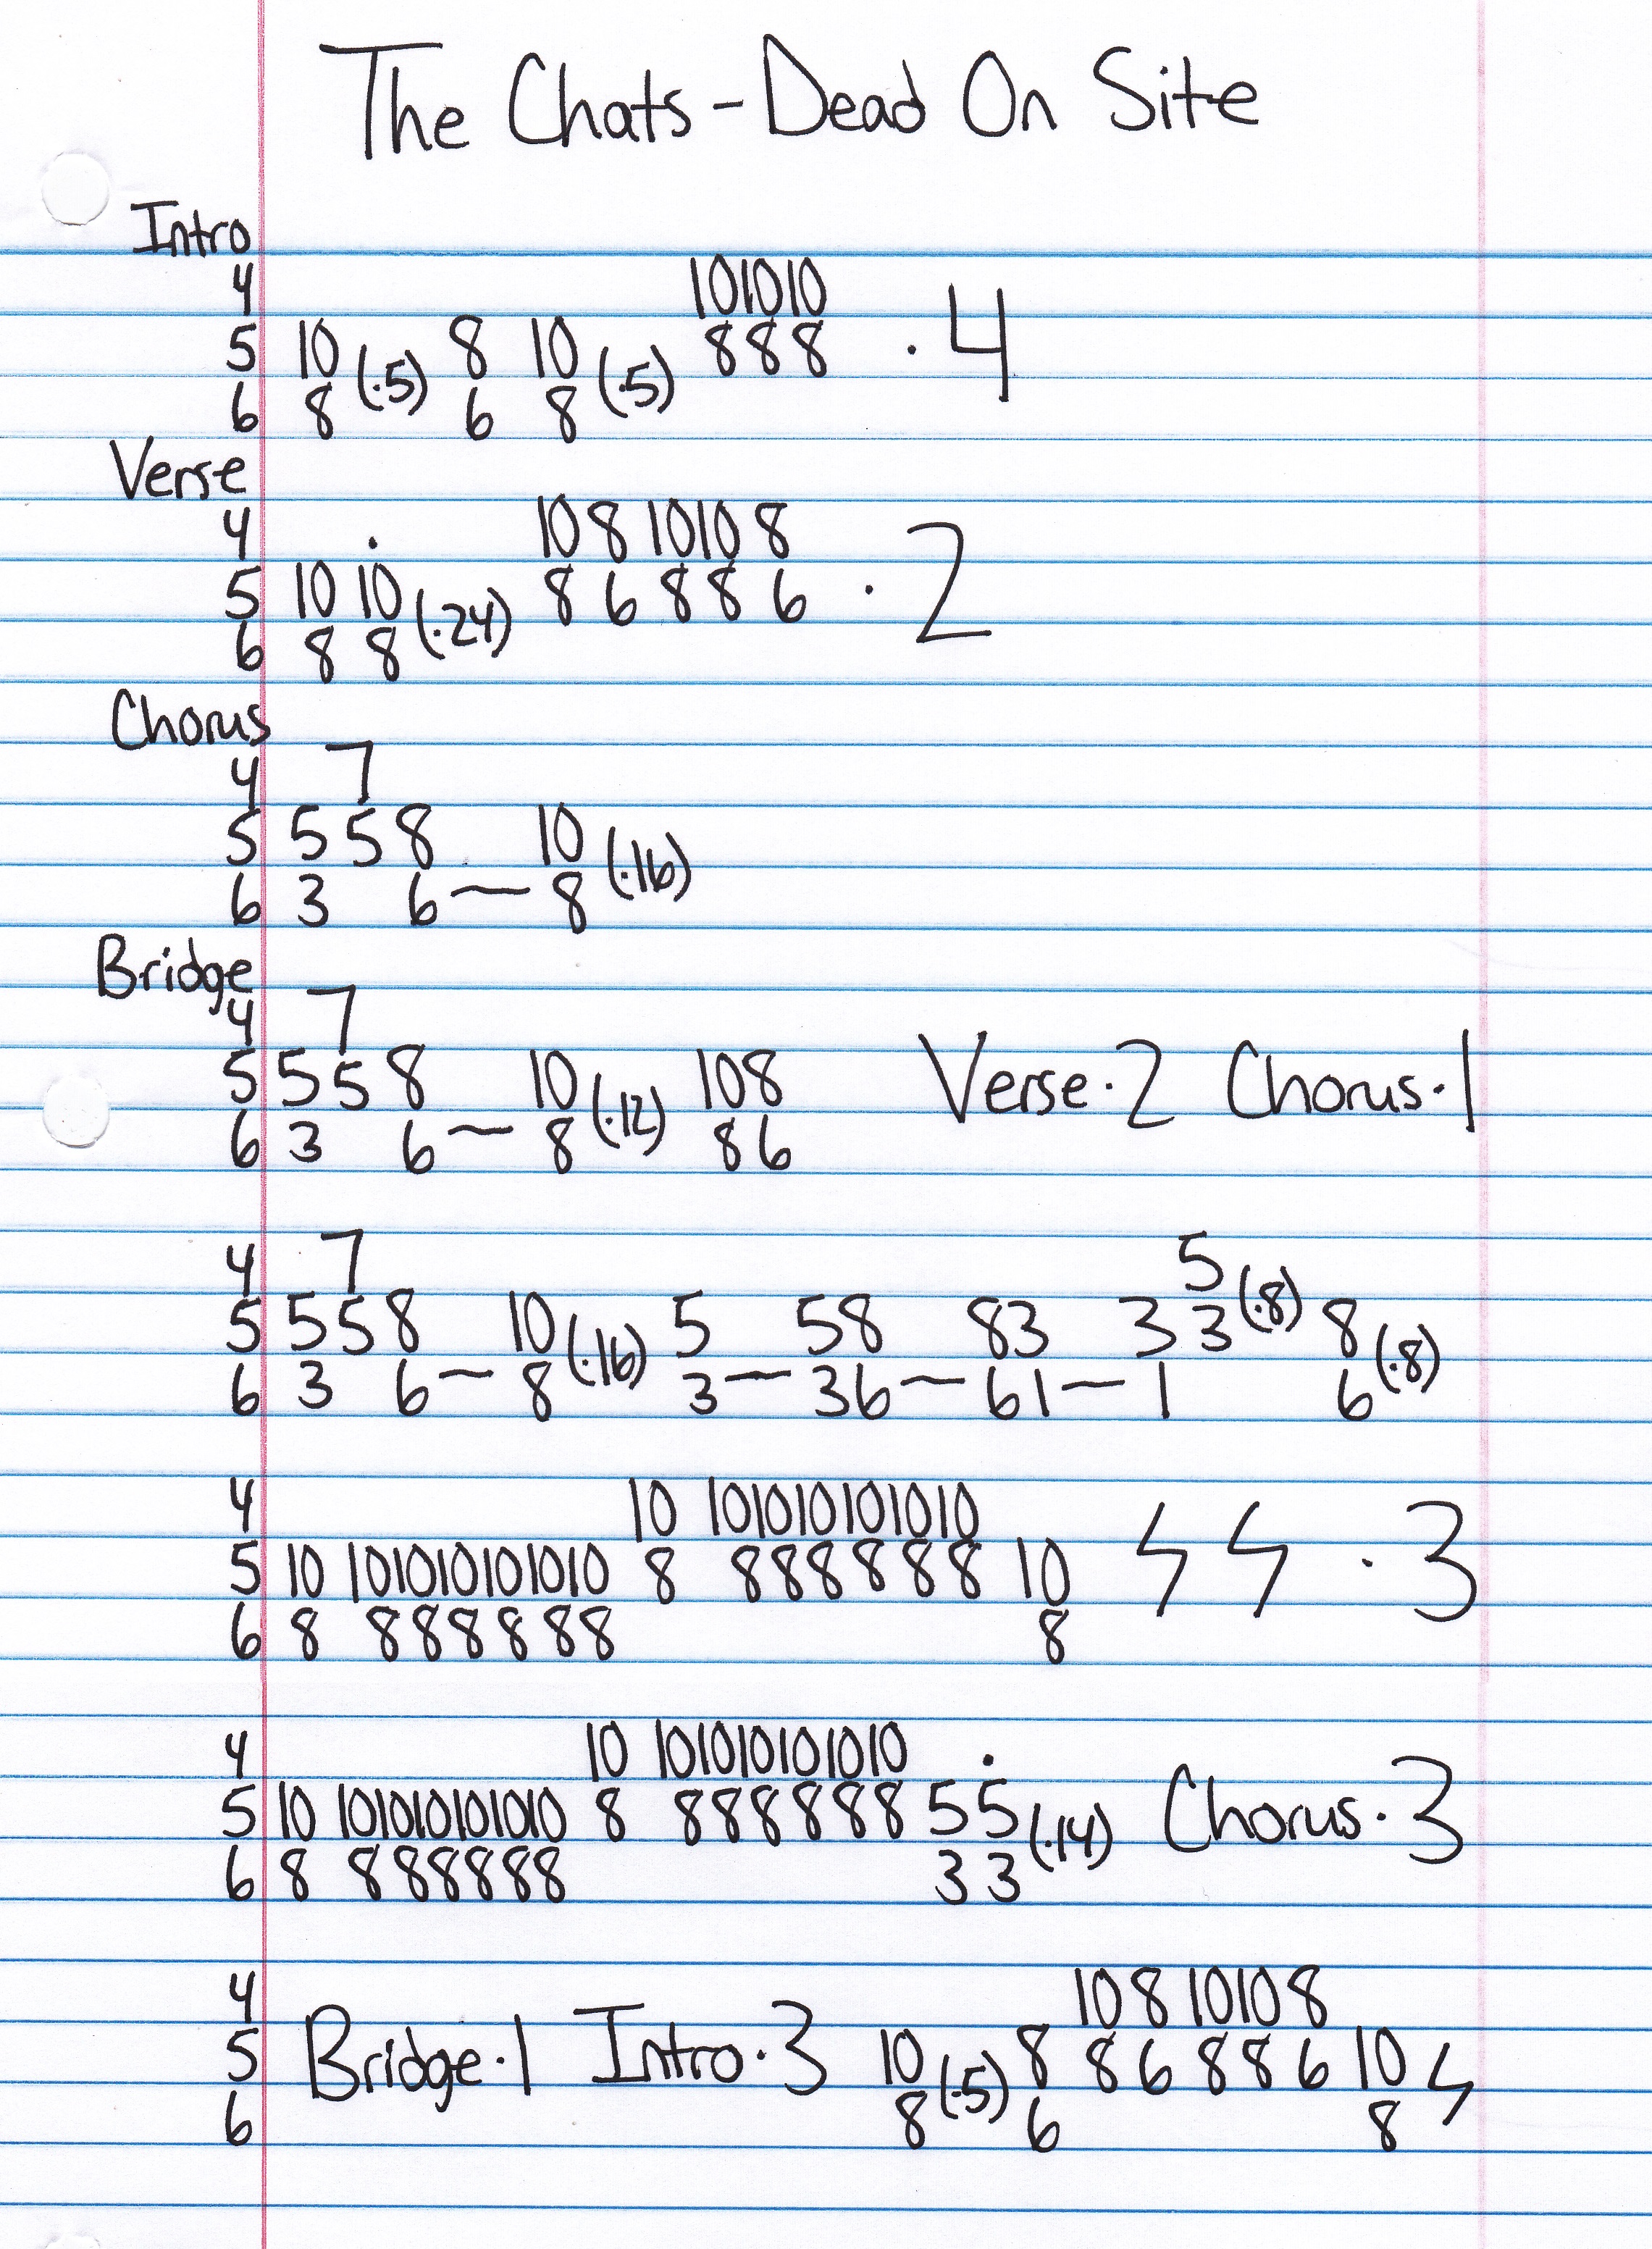 The Chats - Dead On Site
Intro
4 10 10 10
5 10 (·5) 8 10 (·5) 8 8 8 · 4
6 8 6 8
Verse
4 · 10 8 10 10 8
5 10 10 (·24) 8 6 8 8 6 · 2
6 8 8
Chorus
4 7
5 5 5 8 10 (·16)
6 3 6 ~ 8
Bridge
4 7
5 5 5 8 10 (·12) 10 8 Verse·2 Chorus·1
6 3 6 ~ 8 8 6
4 7 5
5 5 5 8 10 (·16) 5 5 8 8 3 3 3 (·8) 8
6 3 6 ~ 8 3 ~ 3 6 ~ 6 1 ~ 1 6 (·8)
4 10 10 10 10 10 10 10
5 10 10 10 10 10 10 10 8 8 8 8 8 8 8 10 ϟ ϟ · 3
6 8 8 8 8 8 8 8 8
4 10 10 10 10 10 10 10 ·
5 10 10 10 10 10 10 10 8 8 8 8 8 8 8 5 5 (·14) Chorus·3
6 8 8 8 8 8 8 8 3 3
4 10 8 10 10 8
5 Bridge·1 Intro·3 10 (·5) 8 8 6 8 8 6 10 ϟ
6 8 6 8